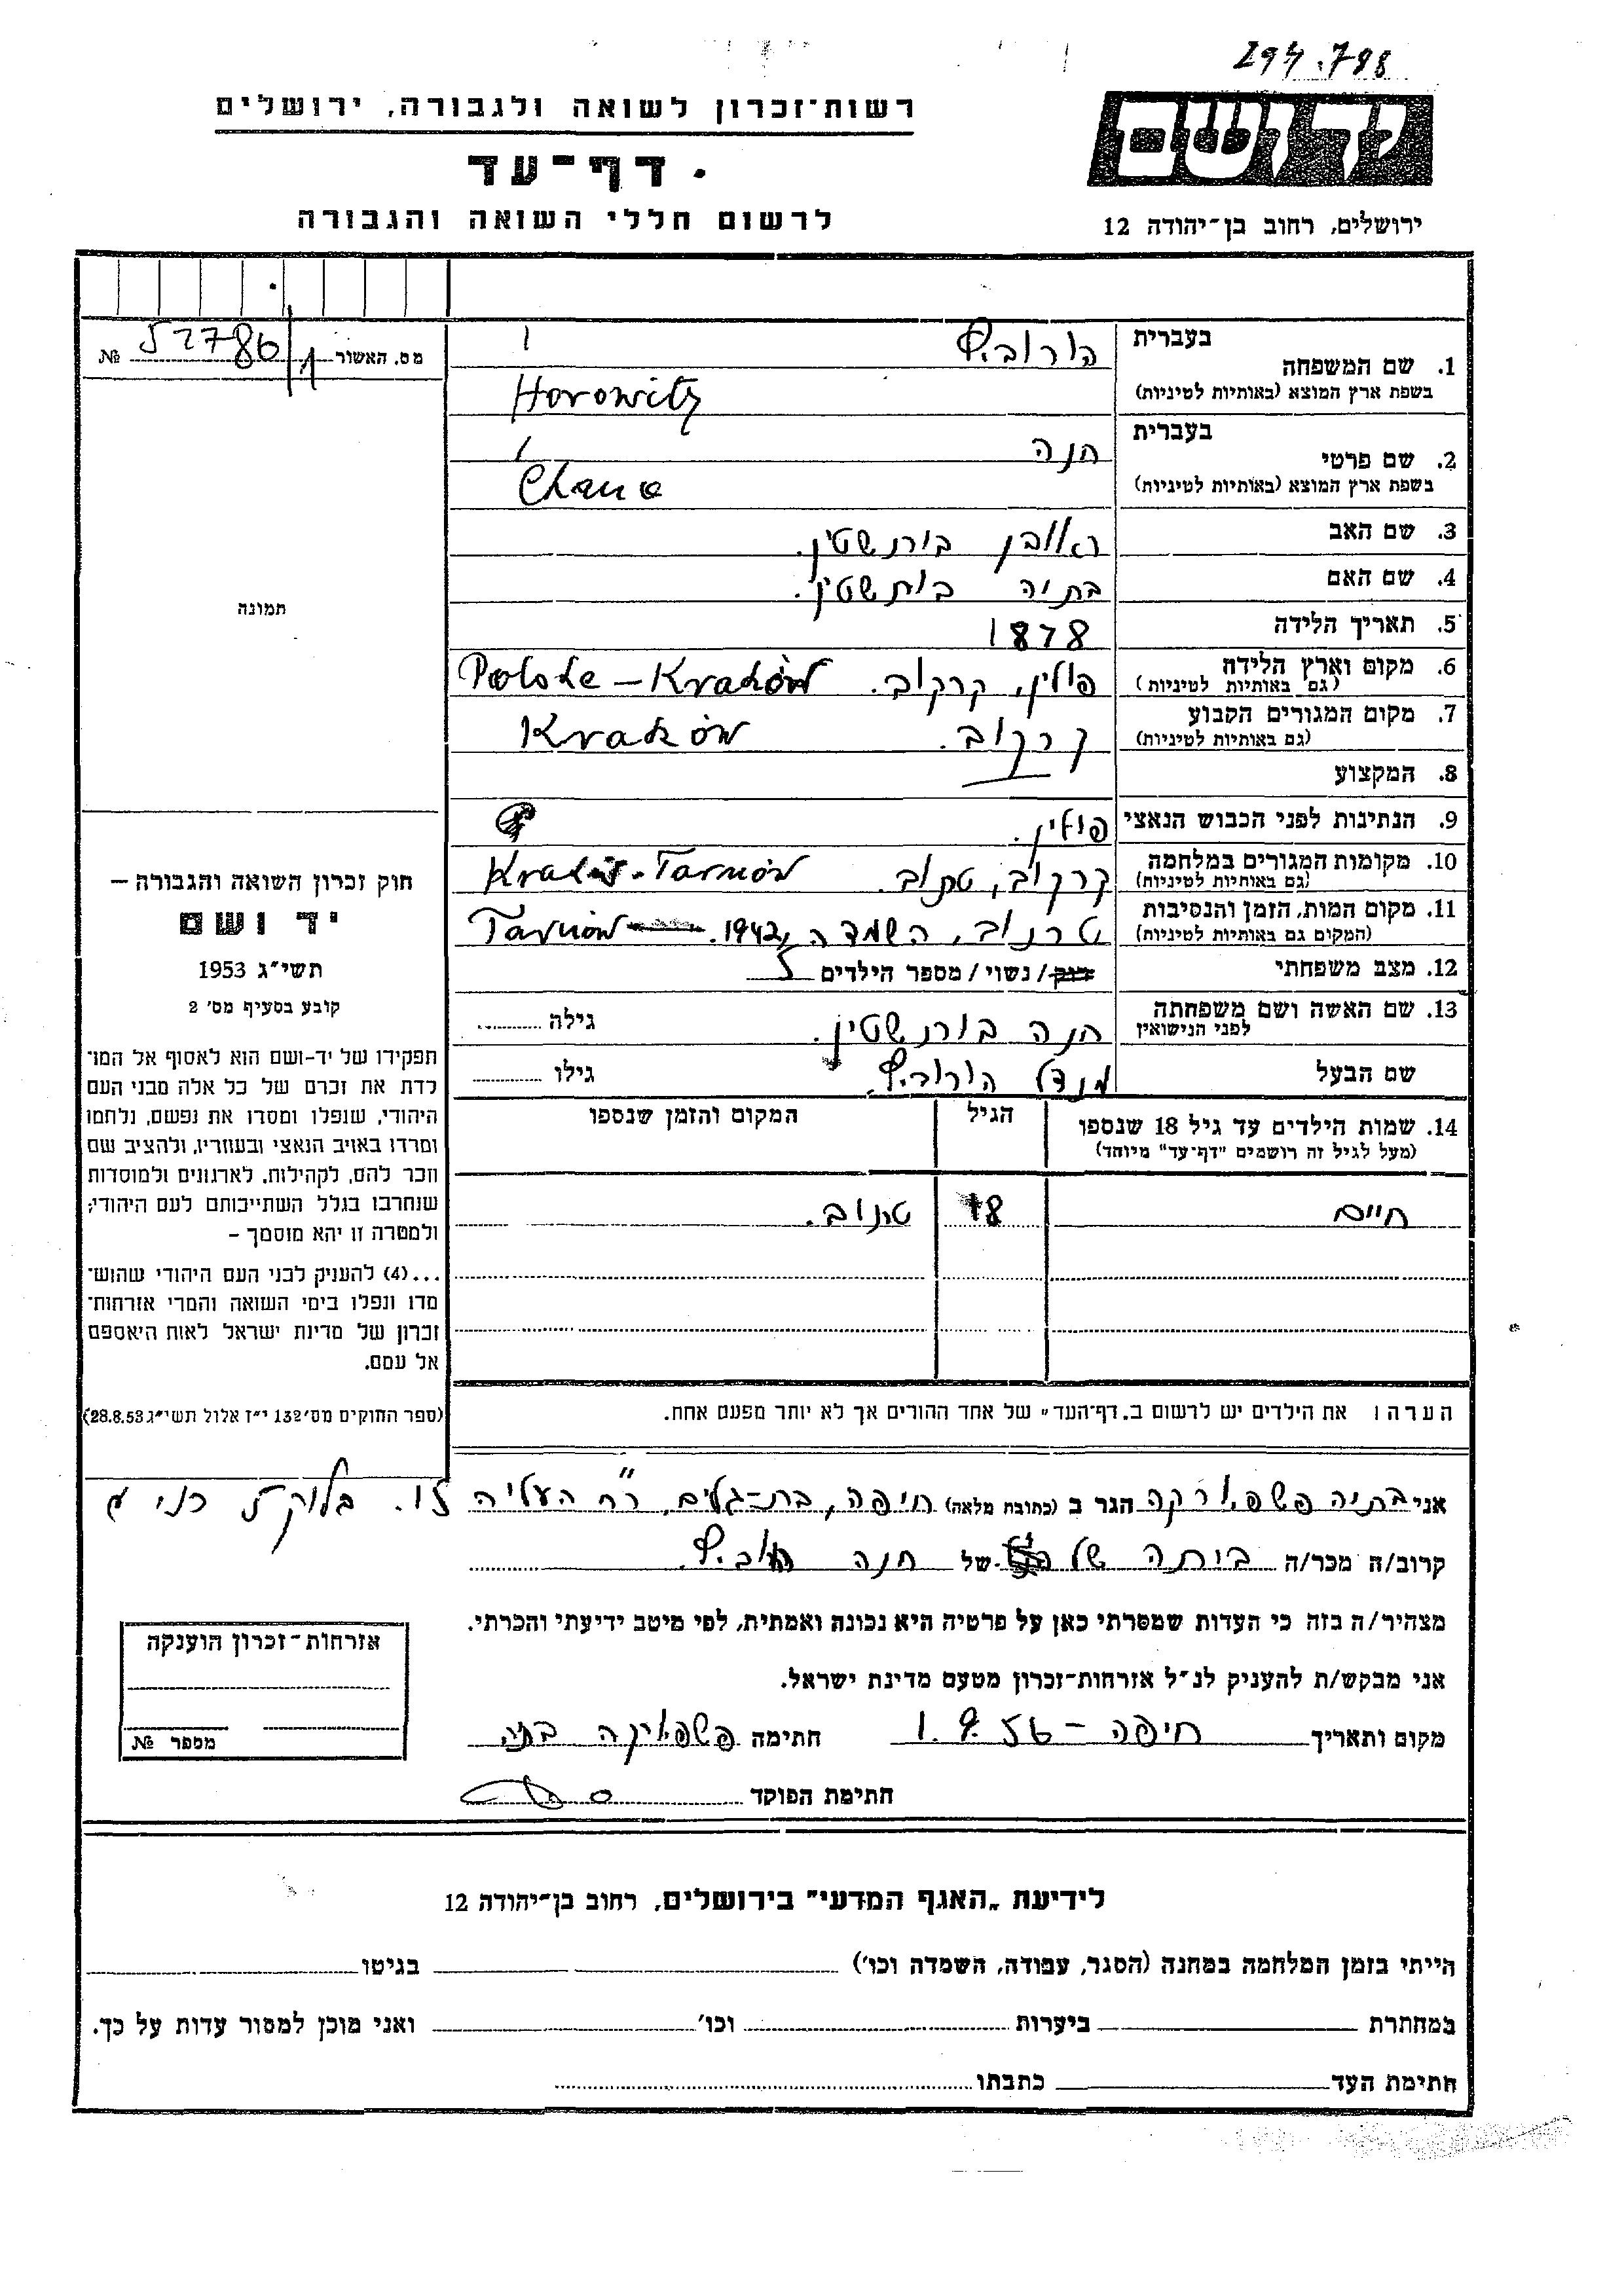 294.788
רשות־זכרון לשואה ולגבורה, ירושלים
דף־עד
לרשום חללי השואה והגבורה
יד ושם
ירושלים, רחוב בן־יהודה 12
מס. האשור 52786 №
בעברית הורוביץ
1. שם המשפחה
בשפת ארץ המוצא (באותיות לטיניות) Horowitz
בעברית חנה
2. שם פרטי
בשפת ארץ המוצא (באותיות לטיניות) Chana
3. שם האב ראובן בורנשטין.
4. שם האם בתיה בורנשטין.
5. תאריך הלידה 1878
6. מקום וארץ הלידה פולין, קרקוב. Polske – Kraków
(גם באותיות לטיניות)
7. מקום המגורים הקבוע קרקוב. Kraków
(גם באותיות לטיניות)
8. המקצוע —
9. הנתינות לפני הכבוש הנאצי פולין.
10. מקומות המגורים במלחמה קרקוב, טרנוב. Kraków - Tarnów
(גם באותיות לטיניות)
11. מקום המות, הזמן והנסיבות טרנוב, השמדה, 1942. Tarnów
(המקום גם באותיות לטיניות)
12. מצב משפחתי רווק / נשוי / מספר הילדים 5
13. שם האשה ושם משפחתה חנה בורנשטין. גילה
לפני הנישואין
שם הבעל מנדל הורוביץ. גילו
14. שמות הילדים עד גיל 18 שנספו הגיל המקום והזמן שנספו
(מעל לגיל זה רושמים "דף־עד" מיוחד)
חיים 18 טרנוב.
הערה: את הילדים יש לרשום ב„דף־העד" של אחד ההורים אך לא יותר מפעם אחת.
תמונה
חוק זכרון השואה והגבורה —
יד ושם
תשי"ג 1953
קובע בסעיף מס' 2
תפקידו של יד-ושם הוא לאסוף אל המו־
לדת את זכרם של כל אלה מבני העם
היהודי, שנפלו ומסרו את נפשם, נלחמו
ומרדו באויב הנאצי ובעוזריו, ולהציב שם
וזכר להם, לקהילות, לארגונים ולמוסדות
שנחרבו בגלל השתייכותם לעם היהודי;
ולמטרה זו יהא מוסמך –
...(4) להעניק לבני העם היהודי שהוש־
מדו ונפלו בימי השואה והמרי אזרחות־
זכרון של מדינת ישראל לאות היאספם
אל עמם.
(ספר החוקים מס' 132 י"ז אלול תשי"ג 28.8.53)
אני בתיה הגר ב (כתובת מלאה) חיפה, בת-גלים, רח העליה בלוק
קרוב/ה מכר/ה ביתה של של חנה
מצהיר/ה בזה כי העדות שמסרתי כאן על פרטיה היא נכונה ואמתית, לפי מיטב ידיעתי והכרתי.
אני מבקש/ת להעניק לנ"ל אזרחות-זכרון מטעם מדינת ישראל.
מקום ותאריך חיפה – 1.9.56 חתימה בתיה
חתימת הפוקד
אזרחות־זכרון הוענקה
מספר №
לידיעת „האגף המדעי" בירושלים, רחוב בן־יהודה 12
הייתי בזמן המלחמה במחנה (הסגר, עבודה, השמדה וכו') בגיטו
במחתרת ביערות וכו' ואני מוכן למסור עדות על כך.
חתימת העד כתבתו